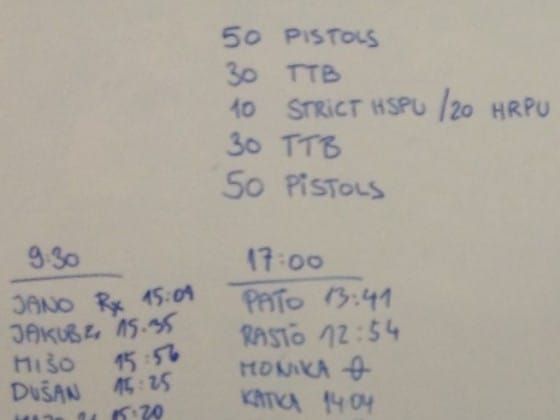 50 PISTOLS
30 TTB
10 STRICT HSPU /20 HRPU
30 TTB
50 PISTOLS
9:30
JANO Rx 15:01
JAKUB 15:35
MIŠO 15:56
DUŠAN 15:25
15:20
17:00
PAŤO 13:41
RASŤO 12:54
MONIKA
KATKA 1404